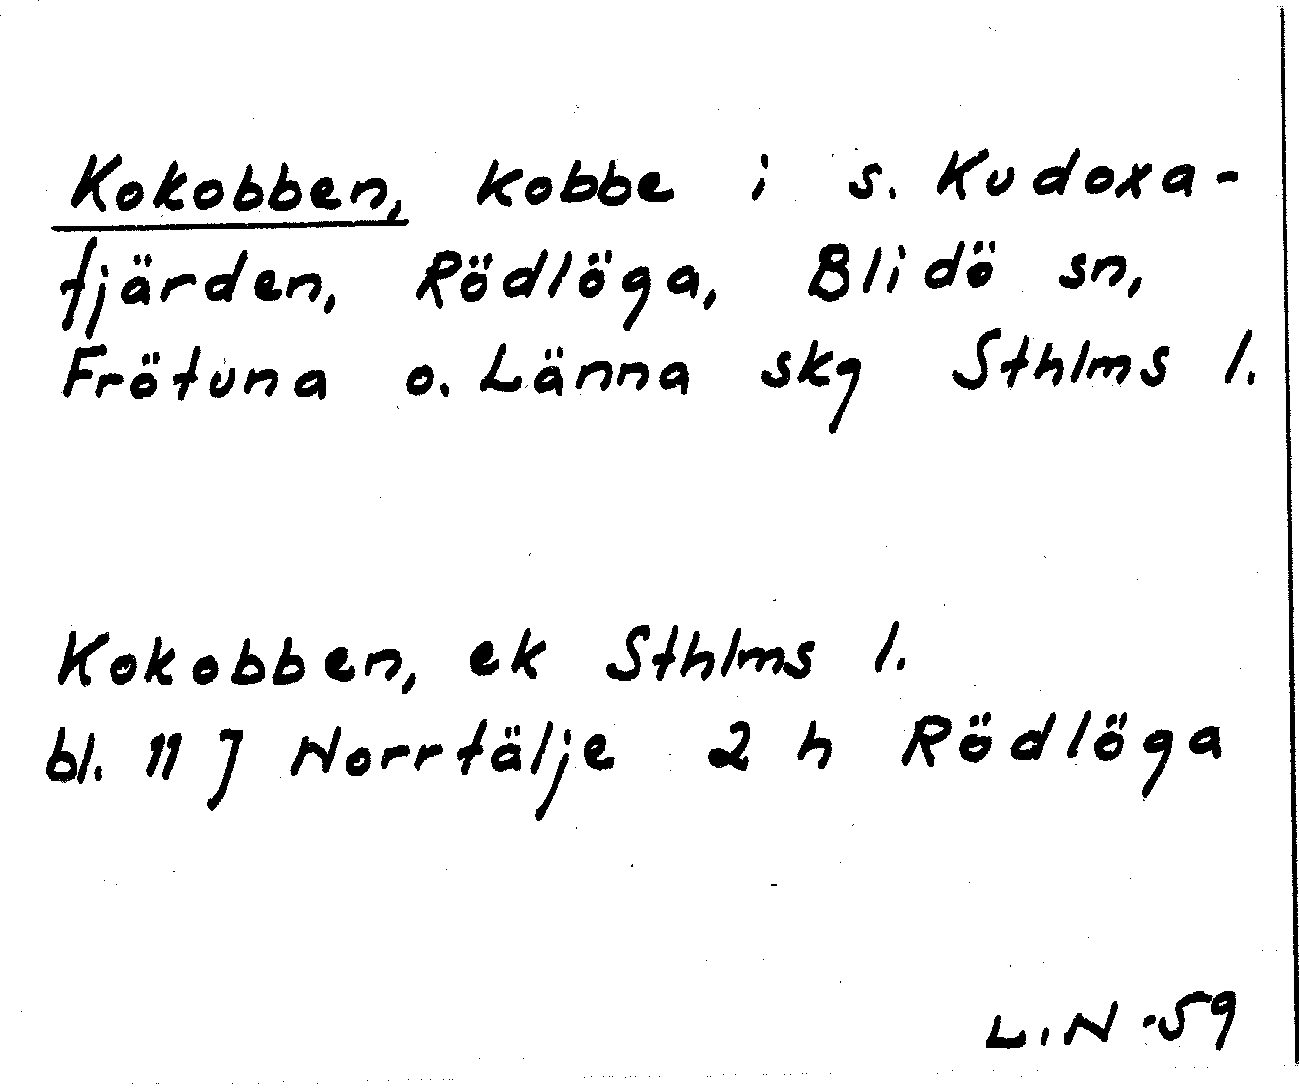 Kokobben, kobbe i s. Kudoxa-
fjärden, Rödlöga, Blidö sn,
Frötuna o. Länna skg Sthlms l.
Kokobben, ek Sthlms l.
bl. 11 J Norrtälje 2 h Rödlöga
L.N -59